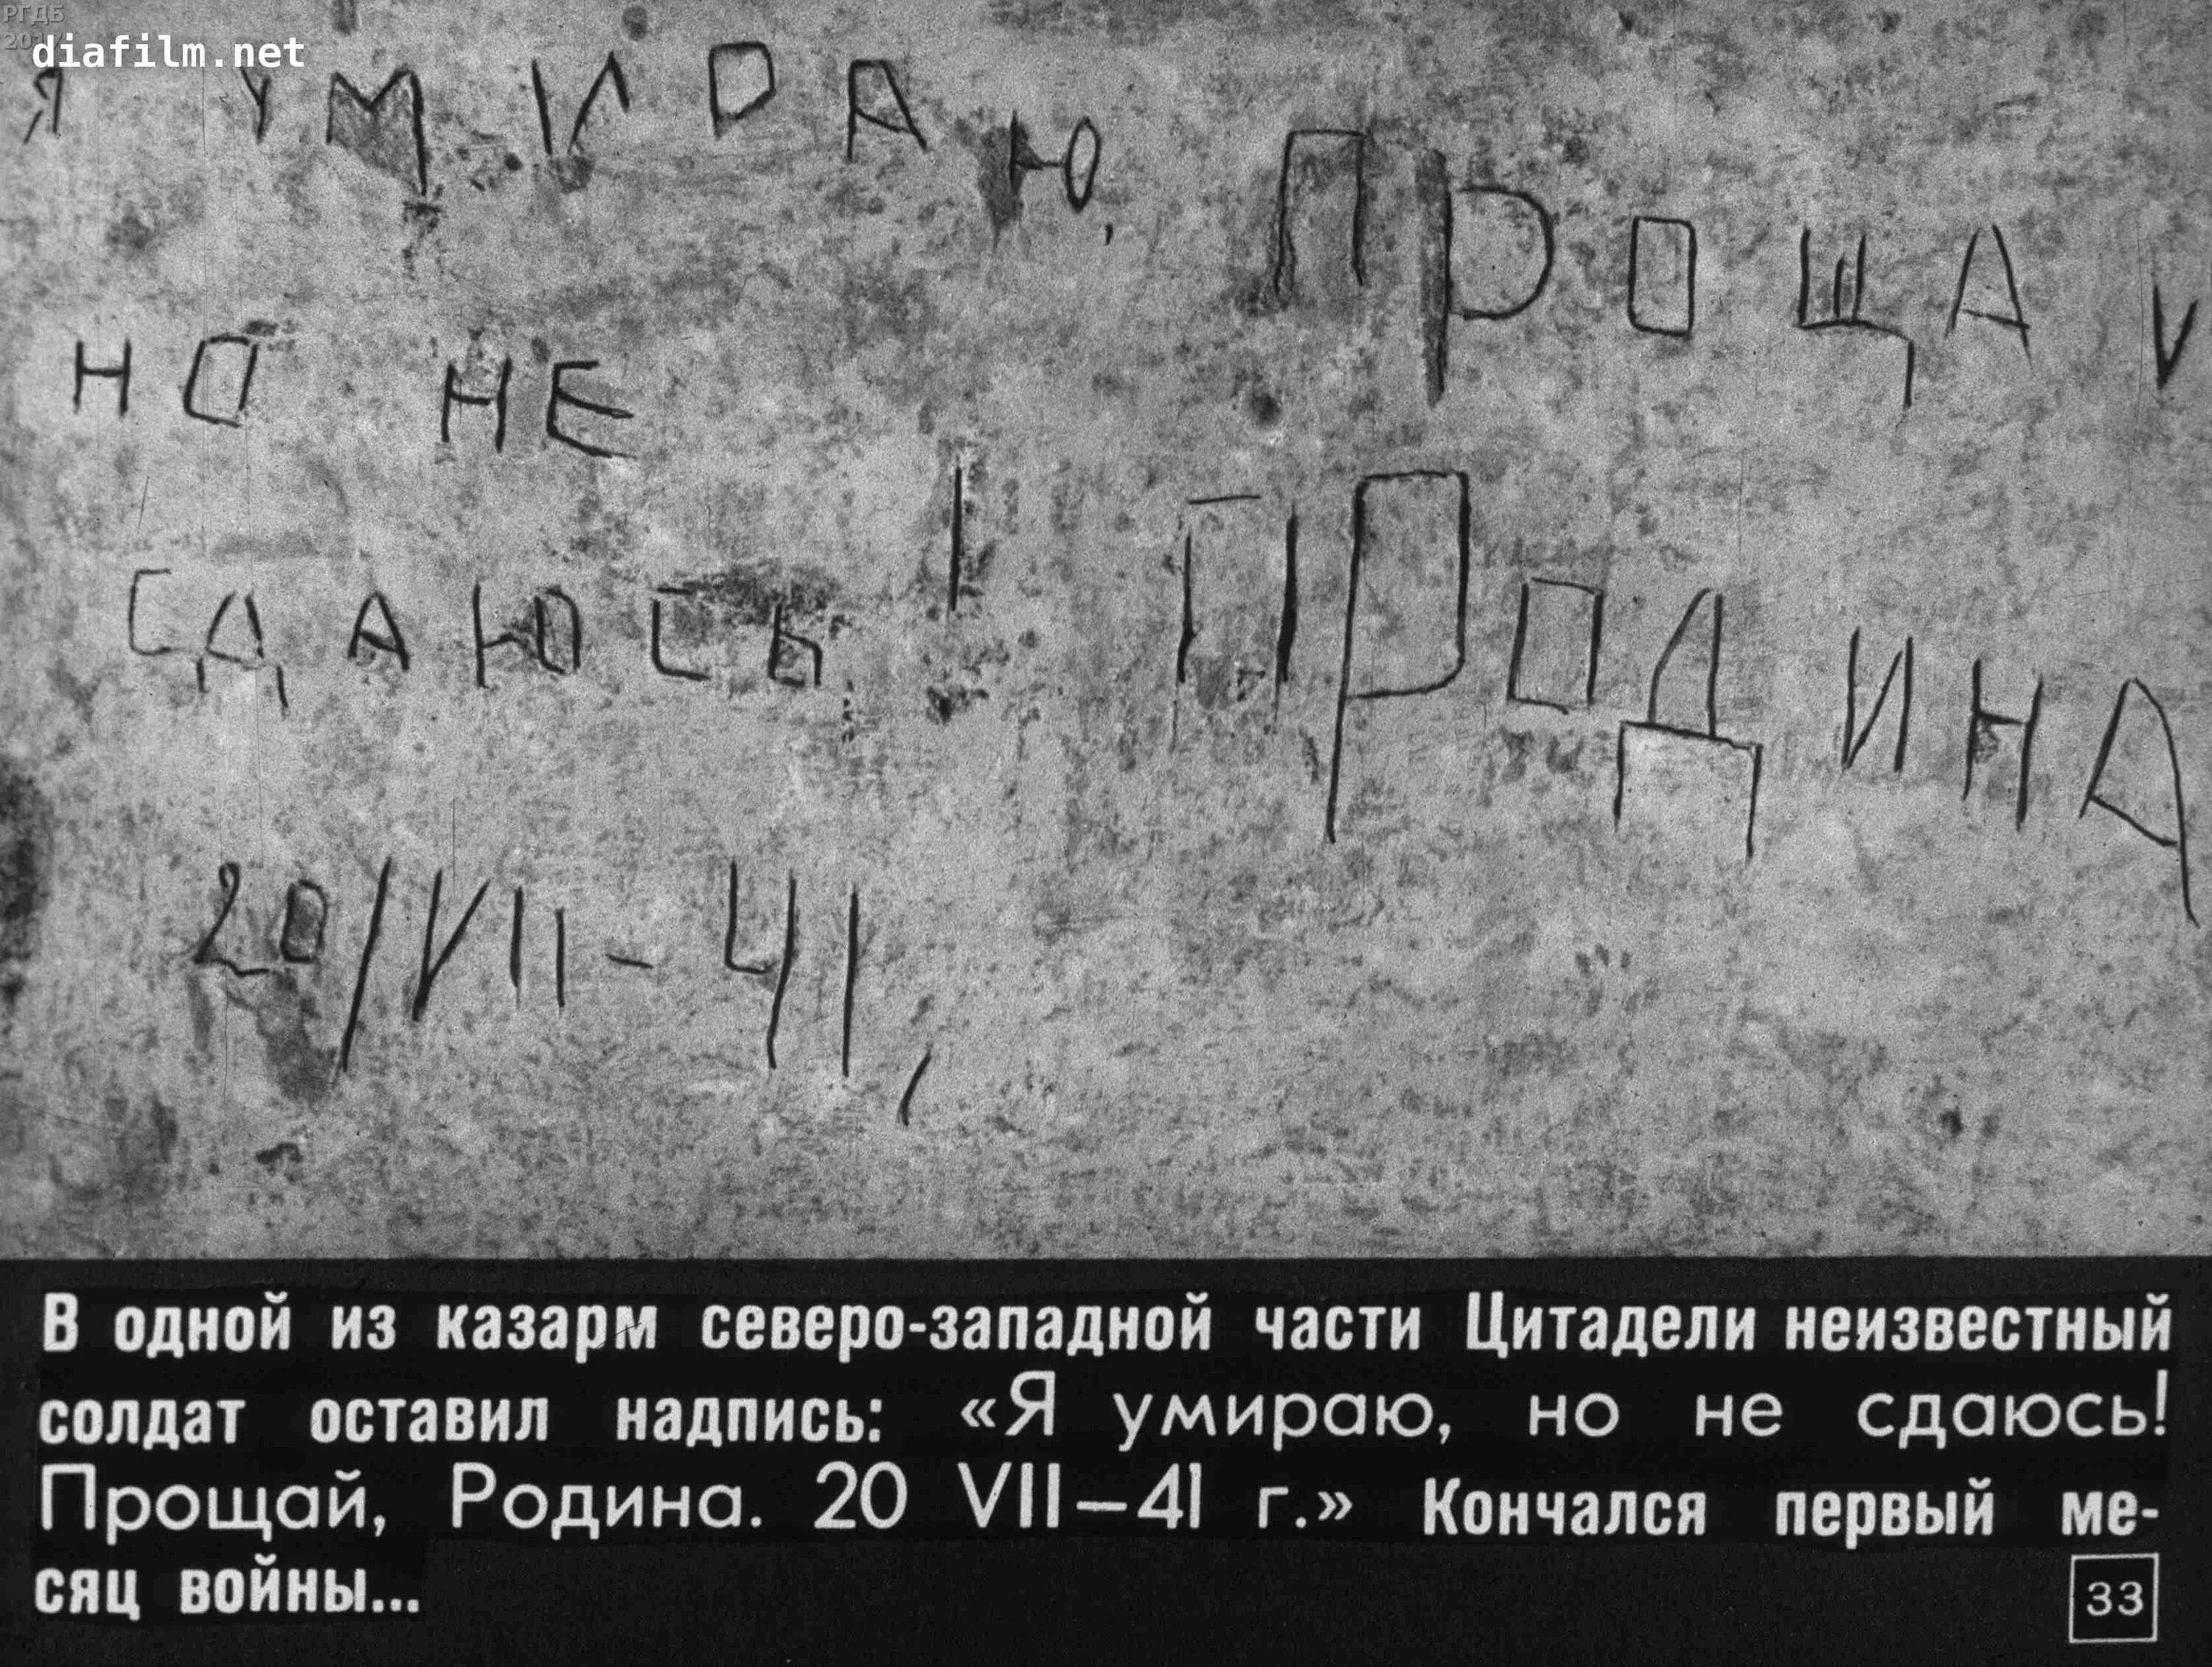 РГДБ
diafilm.net
Я УМИРАЮ, ПРОЩАЙ
НО НЕ
СДАЮСЬ! РОДИНА
20/VII-41,
В одной из казарм северо-западной части Цитадели неизвестный
солдат оставил надпись: «Я умираю, но не сдаюсь!
Прощай, Родина. 20 VII–41 г.» Кончался первый ме-
сяц войны...
33